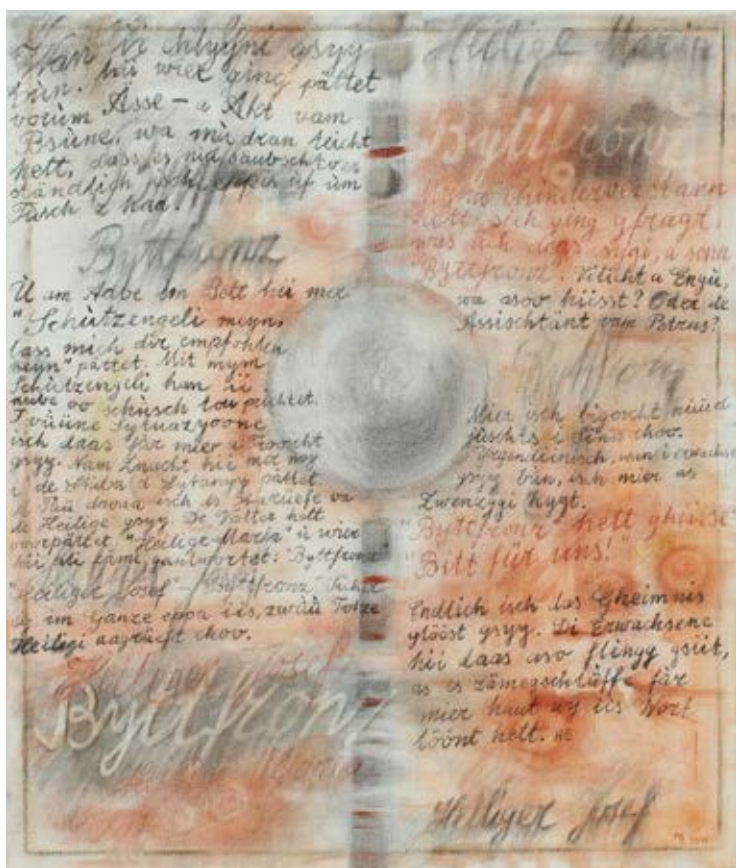 Wan ii chlyyni gsyy
bün, hii wier ging pättet
vorüm Ässe – a Akt vam
Bsüne, wa mü dran teicht
hett, dass es nid säubschtver
ständlich isch, eppis üf üm
Tüsch z haa.
Byttfronz
Ü am Aabe im Bett hii mer
"Schützengeli meyn,
lass mich dir empfohlen
seyn" pättet. Mit mym
Schützengeli han ii
aube oo schüsch tou prichtet.
I
isch daas für mier a Trooscht
gsyy. Nam Znacht hii mer nog
i de Stuba d Lytanyy pättet.
A Tüü davaa isch ds Aarüefe va
de Heilige gsyy. De Vatter hett
voorpättet, "Heilige Maria" ü wier
hii als Famil gantwortet: "Byttfronz"
"Heiliger Josef" – "Byttfronz"
sy im Ganze eppa iis, zwüü Totze
Heiligi aagrüeft choo.
Heiliger Josef
Byttfronz
Heilige Maria
Heilige Maria
Byttfronz
hett sich ging gfragt,
was ächt daas sygi, a sona
"Byttfronz". Vilicht a Engü,
wa asoo hiisst? Oder de
Assischtänt vam Petrus?
Byttfronz
Mier isch bigoscht nüüd
gschyts i Sinn choo.
Irgendeinisch, wan i erwachse
gsyy bün, isch mier as
Zwenzgi kygt.
"Byttfronz" hett ghiisse
"Bitt für uns!"
Endlich isch das Gheimnis
glööst gsyy. Di Erwachsene
hii daas aso flingg gsiit,
as es zämegschlüffe für
mier haut wy iis Wort
töönt hett. HE
Heiliger Josef